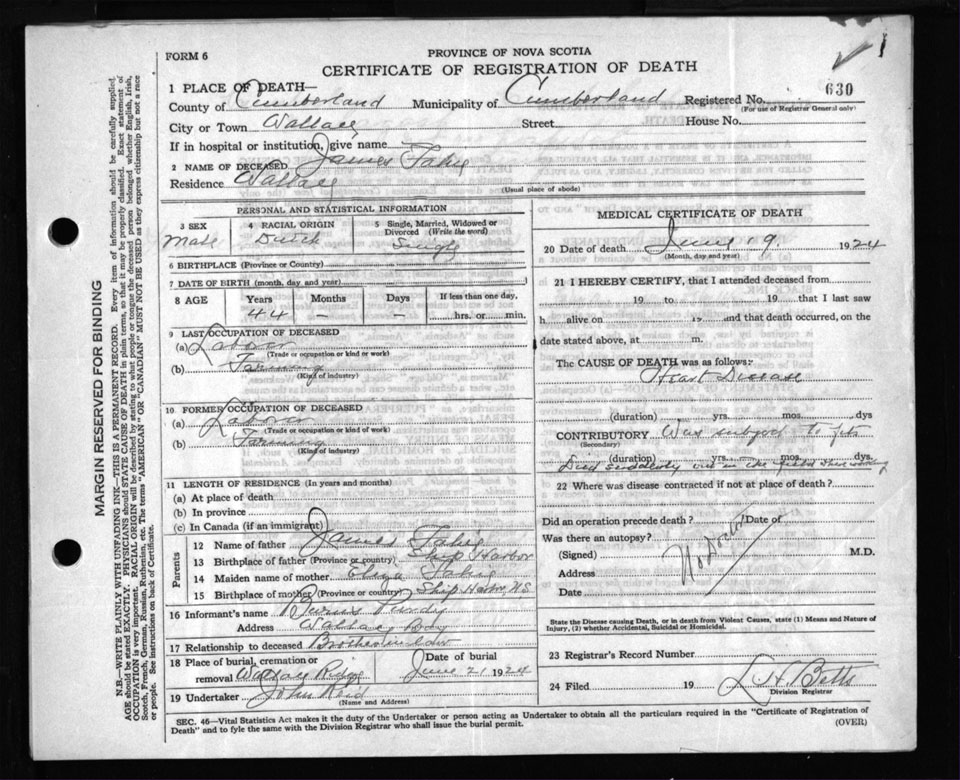 FORM 6
PROVINCE OF NOVA SCOTIA
CERTIFICATE OF REGISTRATION OF DEATH
1 PLACE OF DEATH—
630
County of Cumberland Municipality of Cumberland Registered No.
(For use of Registrar General only)
City or Town Wallace Street House No.
If in hospital or institution, give name
2 NAME OF DECEASED James Fahie
Residence Wallace
(Usual place of abode)
PERSONAL AND STATISTICAL INFORMATION
3 SEX 4 RACIAL ORIGIN 5 Single, Married, Widowed or Divorced (Write the word)
Male Dutch Single
6 BIRTHPLACE (Province or Country)
7 DATE OF BIRTH (month, day and year)
8 AGE Years Months Days If less than one day,
44 — — hrs. or min.
9 LAST OCCUPATION OF DECEASED
(a) Labour
(Trade or occupation or kind or work)
(b) Farming
(Kind of industry)
10 FORMER OCCUPATION OF DECEASED
(a) Labour
(Trade or occupation or kind of work)
(b) Farming
(Kind of industry)
11 LENGTH OF RESIDENCE (In years and months)
(a) At place of death
(b) In province
(c) In Canada (if an immigrant)
Parents
12 Name of father James Fahie
13 Birthplace of father (Province or country) Ship Harbor
14 Maiden name of mother Eliza Fahie
15 Birthplace of mother (Province or country) Ship Harbor N.S
16 Informant's name Purdy
Address Wallace
17 Relationship to deceased Brother in law
18 Place of burial, cremation or removal Wallace Date of burial June 21 1924
19 Undertaker John Reid
(Name and Address)
MEDICAL CERTIFICATE OF DEATH
20 Date of death June 19. 1924
(Month, day and year)
21 I HEREBY CERTIFY, that I attended deceased from
19 to 19 that I last saw
h alive on 19 and that death occurred, on the
date stated above, at m.
The CAUSE OF DEATH was as follows:
Heart Disease
(duration) yrs. mos. dys
CONTRIBUTORY Was subject to fits
(Secondary)
(duration) yrs. mos. dys.
Died suddenly out in the field
22 Where was disease contracted if not at place of death?
Did an operation precede death? Date of
Was there an autopsy?
(Signed) M.D.
No Doctor
Address
Date
State the Disease causing Death, or in death from Violent Causes, state (1) Means and Nature of Injury, (2) whether Accidental, Suicidal or Homicidal.
23 Registrar's Record Number
24 Filed 19 L H Betts
Division Registrar
SEC. 46—Vital Statistics Act makes it the duty of the Undertaker or person acting as Undertaker to obtain all the particulars required in the "Certificate of Registration of
Death" and to fyle the same with the Division Registrar who shall issue the burial permit. (OVER)
MARGIN RESERVED FOR BINDING
N.B.—WRITE PLAINLY WITH UNFADING INK—THIS IS A PERMANENT RECORD. Every item of information should be carefully supplied.
AGE should be stated EXACTLY. PHYSICIANS should STATE CAUSE OF DEATH in plain terms, so that it may be properly classified. Exact statement of
OCCUPATION is very important. RACIAL ORIGIN will be described by stating to what people or tongue the deceased person belonged whether English, Irish,
Scotch, French, German, Russian, Ruthenian, etc. The terms "AMERICAN" OR "CANADIAN" MUST NOT BE USED as they express citizenship but not a race
or people. See instructions on back of Certificate.